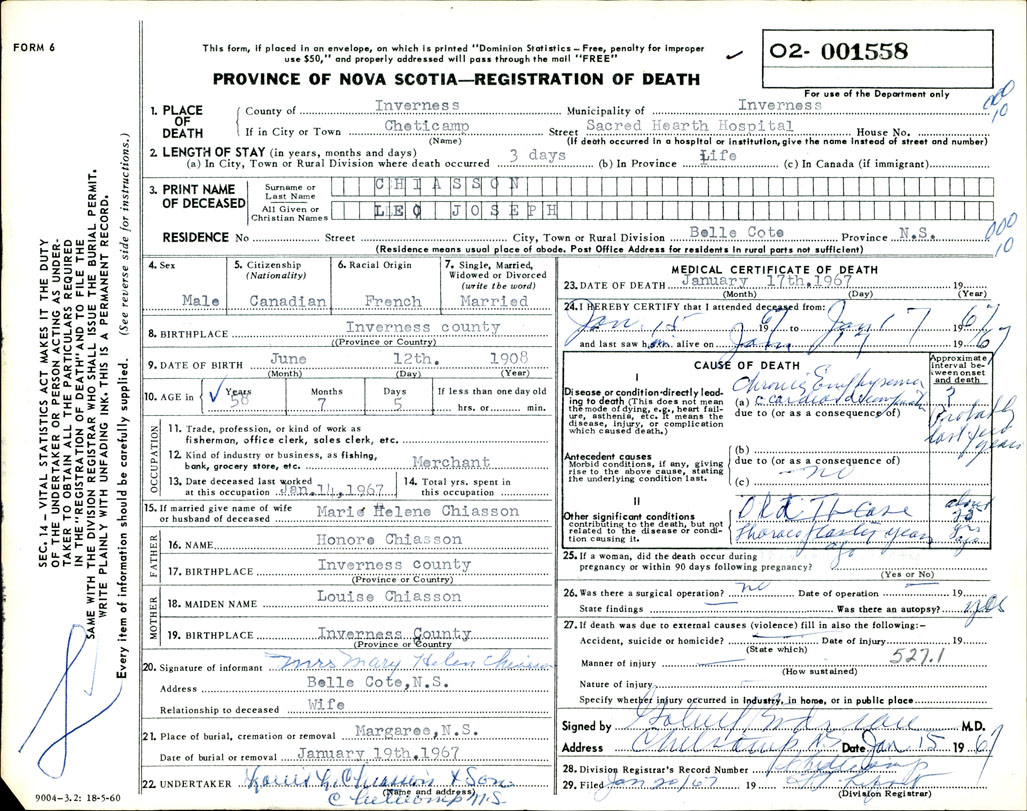 FORM 6
This form, if placed in an envelope, on which is printed "Dominion Statistics – Free, penalty for improper
use $50," and properly addressed will pass through the mail "FREE"
02- 001558
For use of the Department only
PROVINCE OF NOVA SCOTIA—REGISTRATION OF DEATH
1. PLACE OF DEATH
County of Inverness Municipality of Inverness
If in City or Town Cheticamp Street Sacred Hearth Hospital House No.
(Name) (If death occurred in a hospital or institution, give the name instead of street and number)
2. LENGTH OF STAY (in years, months and days)
(a) In City, Town or Rural Division where death occurred 3 days (b) In Province Life (c) In Canada (if immigrant)
3. PRINT NAME OF DECEASED
Surname or Last Name CHIASSON
All Given or Christian Names LEO JOSEPH
RESIDENCE No Street City, Town or Rural Division Belle Cote Province N.S.
(Residence means usual place of abode. Post Office Address for residents in rural parts not sufficient)
000
10
4. Sex Male
5. Citizenship (Nationality) Canadian
6. Racial Origin French
7. Single, Married, Widowed or Divorced (write the word) Married
8. BIRTHPLACE Inverness county
(Province or County)
9. DATE OF BIRTH June 12th. 1908
(Month) (Day) (Year)
10. AGE in Years 58 Months Days 5 If less than one day old hrs. or min.
OCCUPATION
11. Trade, profession, or kind of work as
fisherman, office clerk, sales clerk, etc.
12. Kind of industry or business, as fishing,
bank, grocery store, etc. Merchant
13. Date deceased last worked
at this occupation Jan.14,1967
14. Total yrs. spent in
this occupation
15. If married give name of wife
or husband of deceased Marie Helene Chiasson
FATHER
16. NAME Honore Chiasson
17. BIRTHPLACE Inverness county
(Province or County)
MOTHER
18. MAIDEN NAME Louise Chiasson
19. BIRTHPLACE Inverness County
(Province or County)
20. Signature of informant Mrs Mary Helen Chiasson
Address Belle Cote,N.S.
Relationship to deceased Wife
21. Place of burial, cremation or removal Margaree,N.S.
Date of burial or removal January 19th.1967
22. UNDERTAKER Chiasson & Son
(Name and address)
Cheticamp N.S.
9004-3.2: 18-5-60
MEDICAL CERTIFICATE OF DEATH
23. DATE OF DEATH January 17th.1967 19
(Month) (Day) (Year)
24. I HEREBY CERTIFY that I attended deceased from:
Jan. 15 1967 to Jan 17 1967
and last saw him alive on Jan 17 1967
CAUSE OF DEATH
Approximate interval between onset and death
I
Disease or condition directly leading to death (This does not mean the mode of dying, e.g., heart failure, asthenia, etc. It means the disease, injury, or complication which caused death.)
Chronic Emphysema
(a) c cardiac
due to (or as a consequence of)
?
Probably
last few
years
Antecedent causes
Morbid conditions, if any, giving rise to the above cause, stating the underlying condition last.
(b)
due to (or as a consequence of)
(c) no
II
Other significant conditions contributing to the death, but not related to the disease or condition causing it.
Old Tb case
Thoracoplasty years
ago
about
yrs
ago
25. If a woman, did the death occur during
pregnancy or within 90 days following pregnancy?
(Yes or No)
26. Was there a surgical operation? no Date of operation 19
State findings Was there an autopsy? yes
27. If death was due to external causes (violence) fill in also the following:–
Accident, suicide or homicide? Date of injury 19
(State which)
527.1
Manner of injury
(How sustained)
Nature of injury
Specify whether injury occurred in industry, in home, or in public place
Signed by M.D.
Address Cheticamp N.S. Date Jan 15 1967
28. Division Registrar's Record Number
29. Filed Jan 20/67 19
(Division Registrar)
SEC. 14 – VITAL STATISTICS ACT MAKES IT THE DUTY
OF THE UNDERTAKER OR PERSON ACTING AS UNDER-
TAKER TO OBTAIN ALL THE PARTICULARS REQUIRED
IN THE "REGISTRATION OF DEATH" AND TO FILE THE
SAME WITH THE DIVISION REGISTRAR WHO SHALL ISSUE THE BURIAL PERMIT.
WRITE PLAINLY WITH UNFADING INK. THIS IS A PERMANENT RECORD.
Every item of information should be carefully supplied. (See reverse side for instructions.)